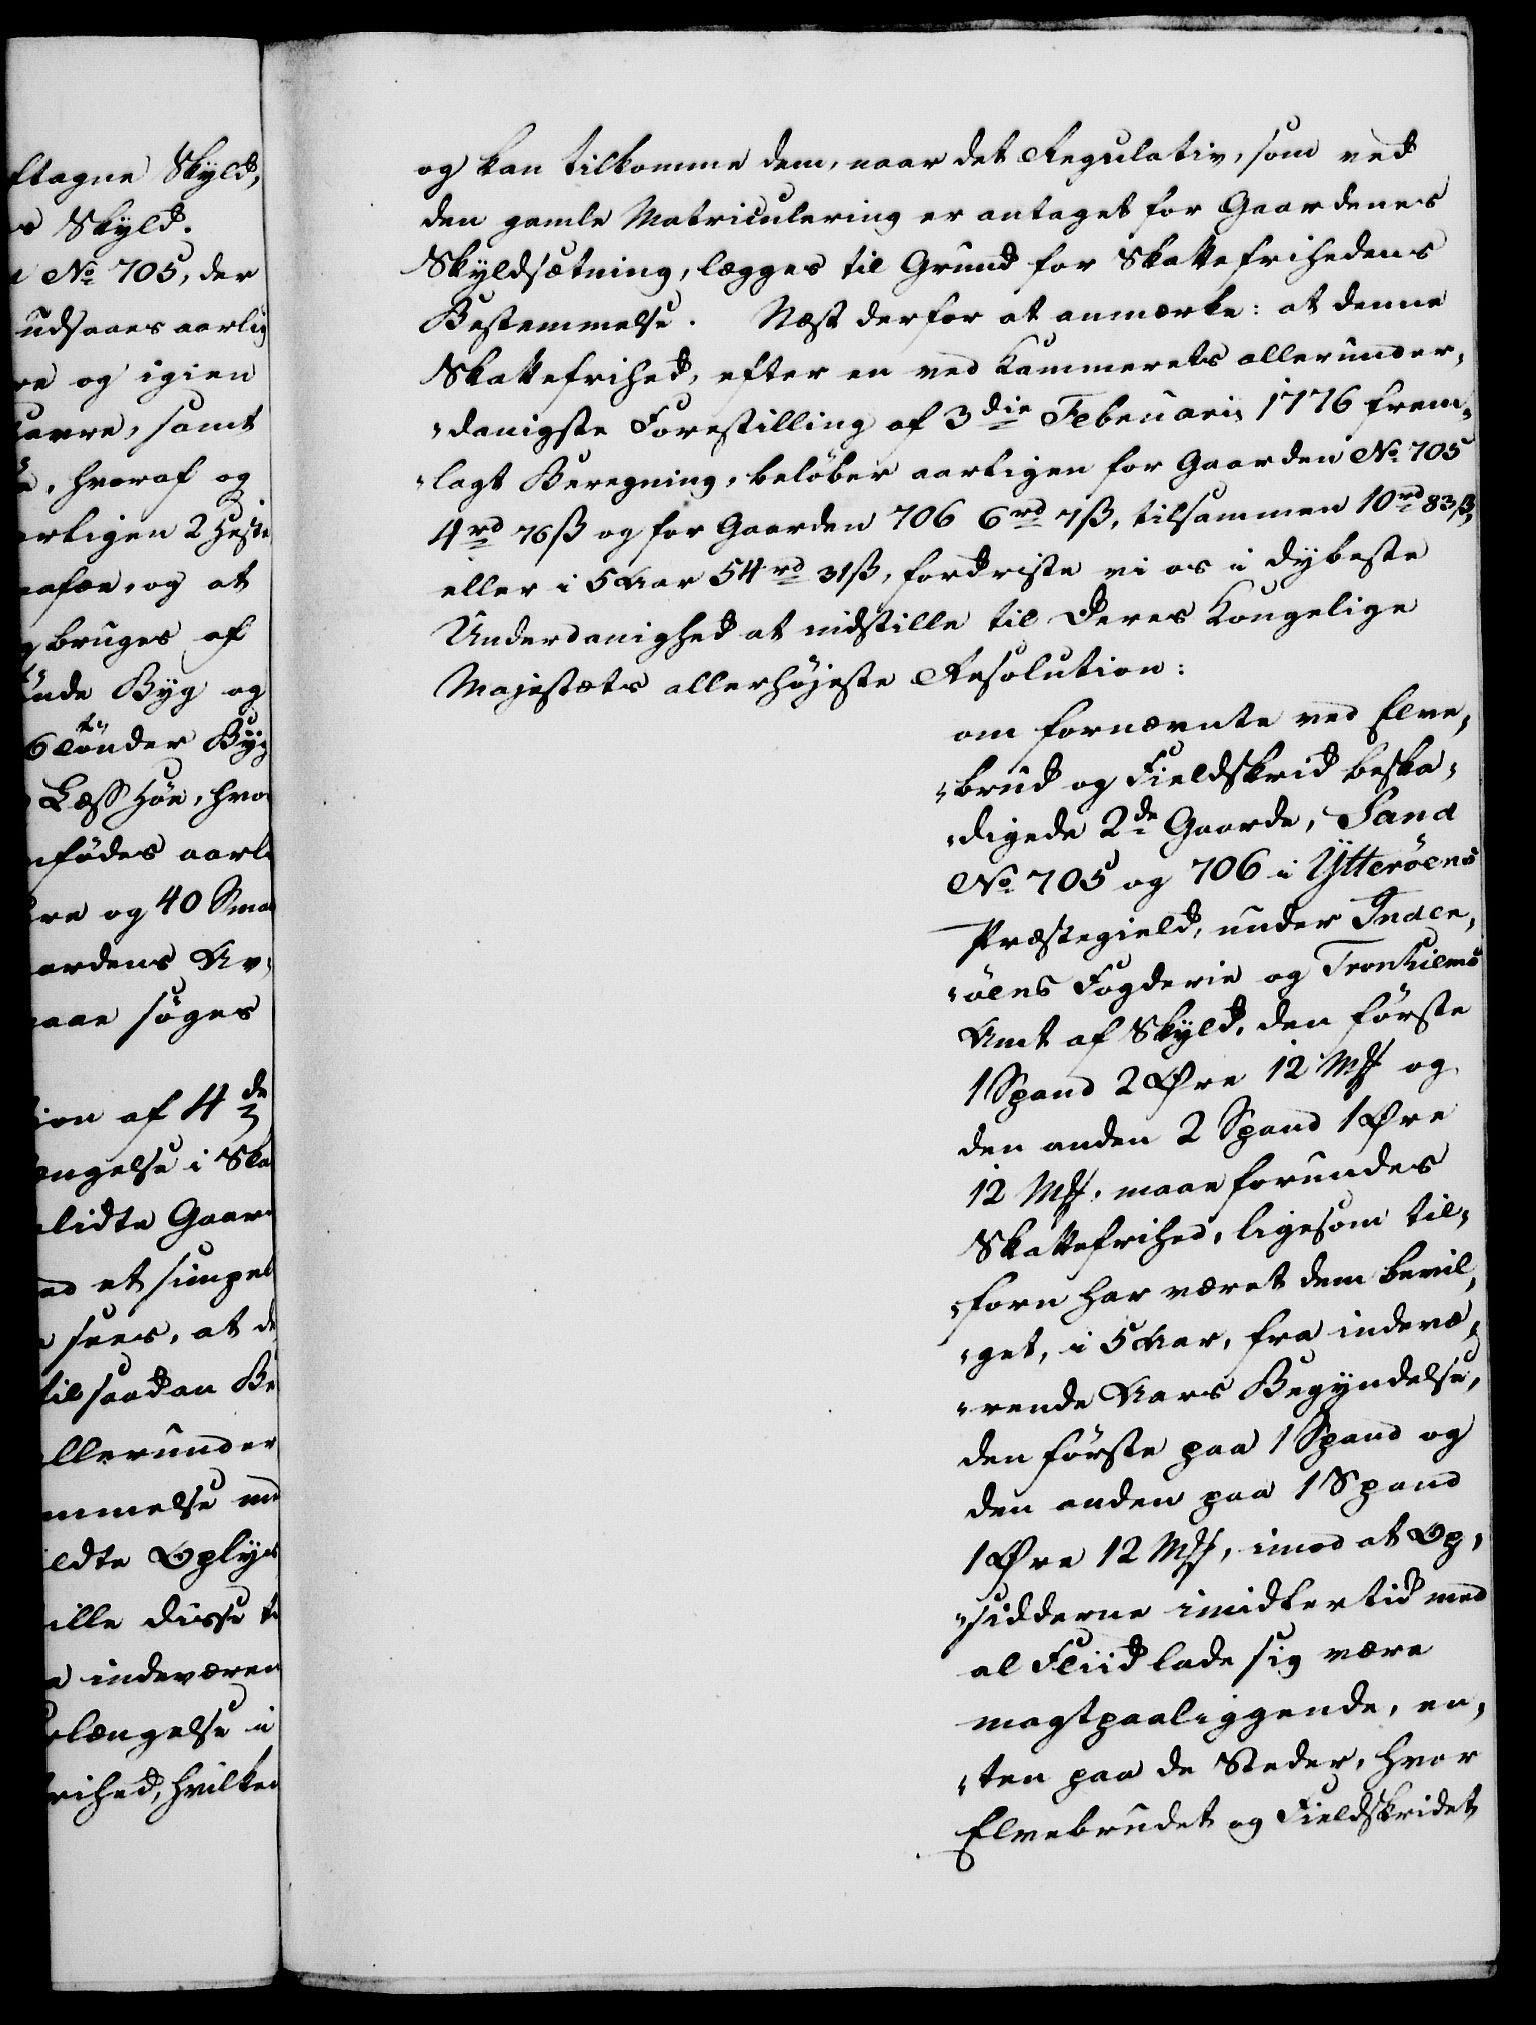 ftagne Skyld,
s Skyld.
No 705, der
udsaaes aarlig
re og igien
avre, samt
, hvoraf og
arligen 2 Heste
og at
bruges af
Byg og
6 Tönder Byg
Læss Höe, hvo
födes aarl
re og 40 Sma
ardens Av,
maae söges
ion af 4de
engelse i Ska
lidte Gaar
ed et simpel
sees, at de
til saadan Be
llerunder
mmelse
ldte Oplys
ille disse
indeværen
længelse i
rihed, hvilken
og kan tilkomme dem, naar det Regulativ, som ved
den gamle Matriculering er antaget for Gaardenes
Skyldsætning, lægges til Grund for Skattefrihedens
Bestemmelse. Næst derfor at anmærke: at denne
Skattefrihed, efter en ved Kammerets allerunder,
„danigste Forestilling af 3die Februarii 1776 frem„
„lagt Beregning, belöber aarligen for Gaarden No 705
4rd 76ß og for Gaarden 706 6rd 7ß, tilsammen 10rd 83ß,
eller i 5 Aar 54rd 31ß, fordriste vi os i dybeste
Underdanighed at indstille til Deres Kongelige
Majestæts allerhöjeste Resolution:
om fornævnte ved Elve,
„brud og Fieldskrid beska„
„digede 2de Gaarde, Sand
No 705 og 706 i Ytteröens
Præstegield, under Inde„
„röens Fogderie og Tronhiems
Amt af Skyld, den förste
1 Spand 2 Øre 12 Mkl og
den anden 2 Spand 1 Øre
12 Mkl, maae forundes
Skattefrihed, ligesom til„
„forn har været dem bevil„
„get, i 5 Aar, fra indevæ„
„rende Aars Begyndelse,
den förste paa 1 Spand og
den anden paa 1 Spand
1 Øre 12 Mkl, imod at Op„
„sidderne imidlertid med
al Fliid lade sig være
magtpaaliggende, en„
„ten paa de Steder, hvor
Elvebrudet og Fieldskridet